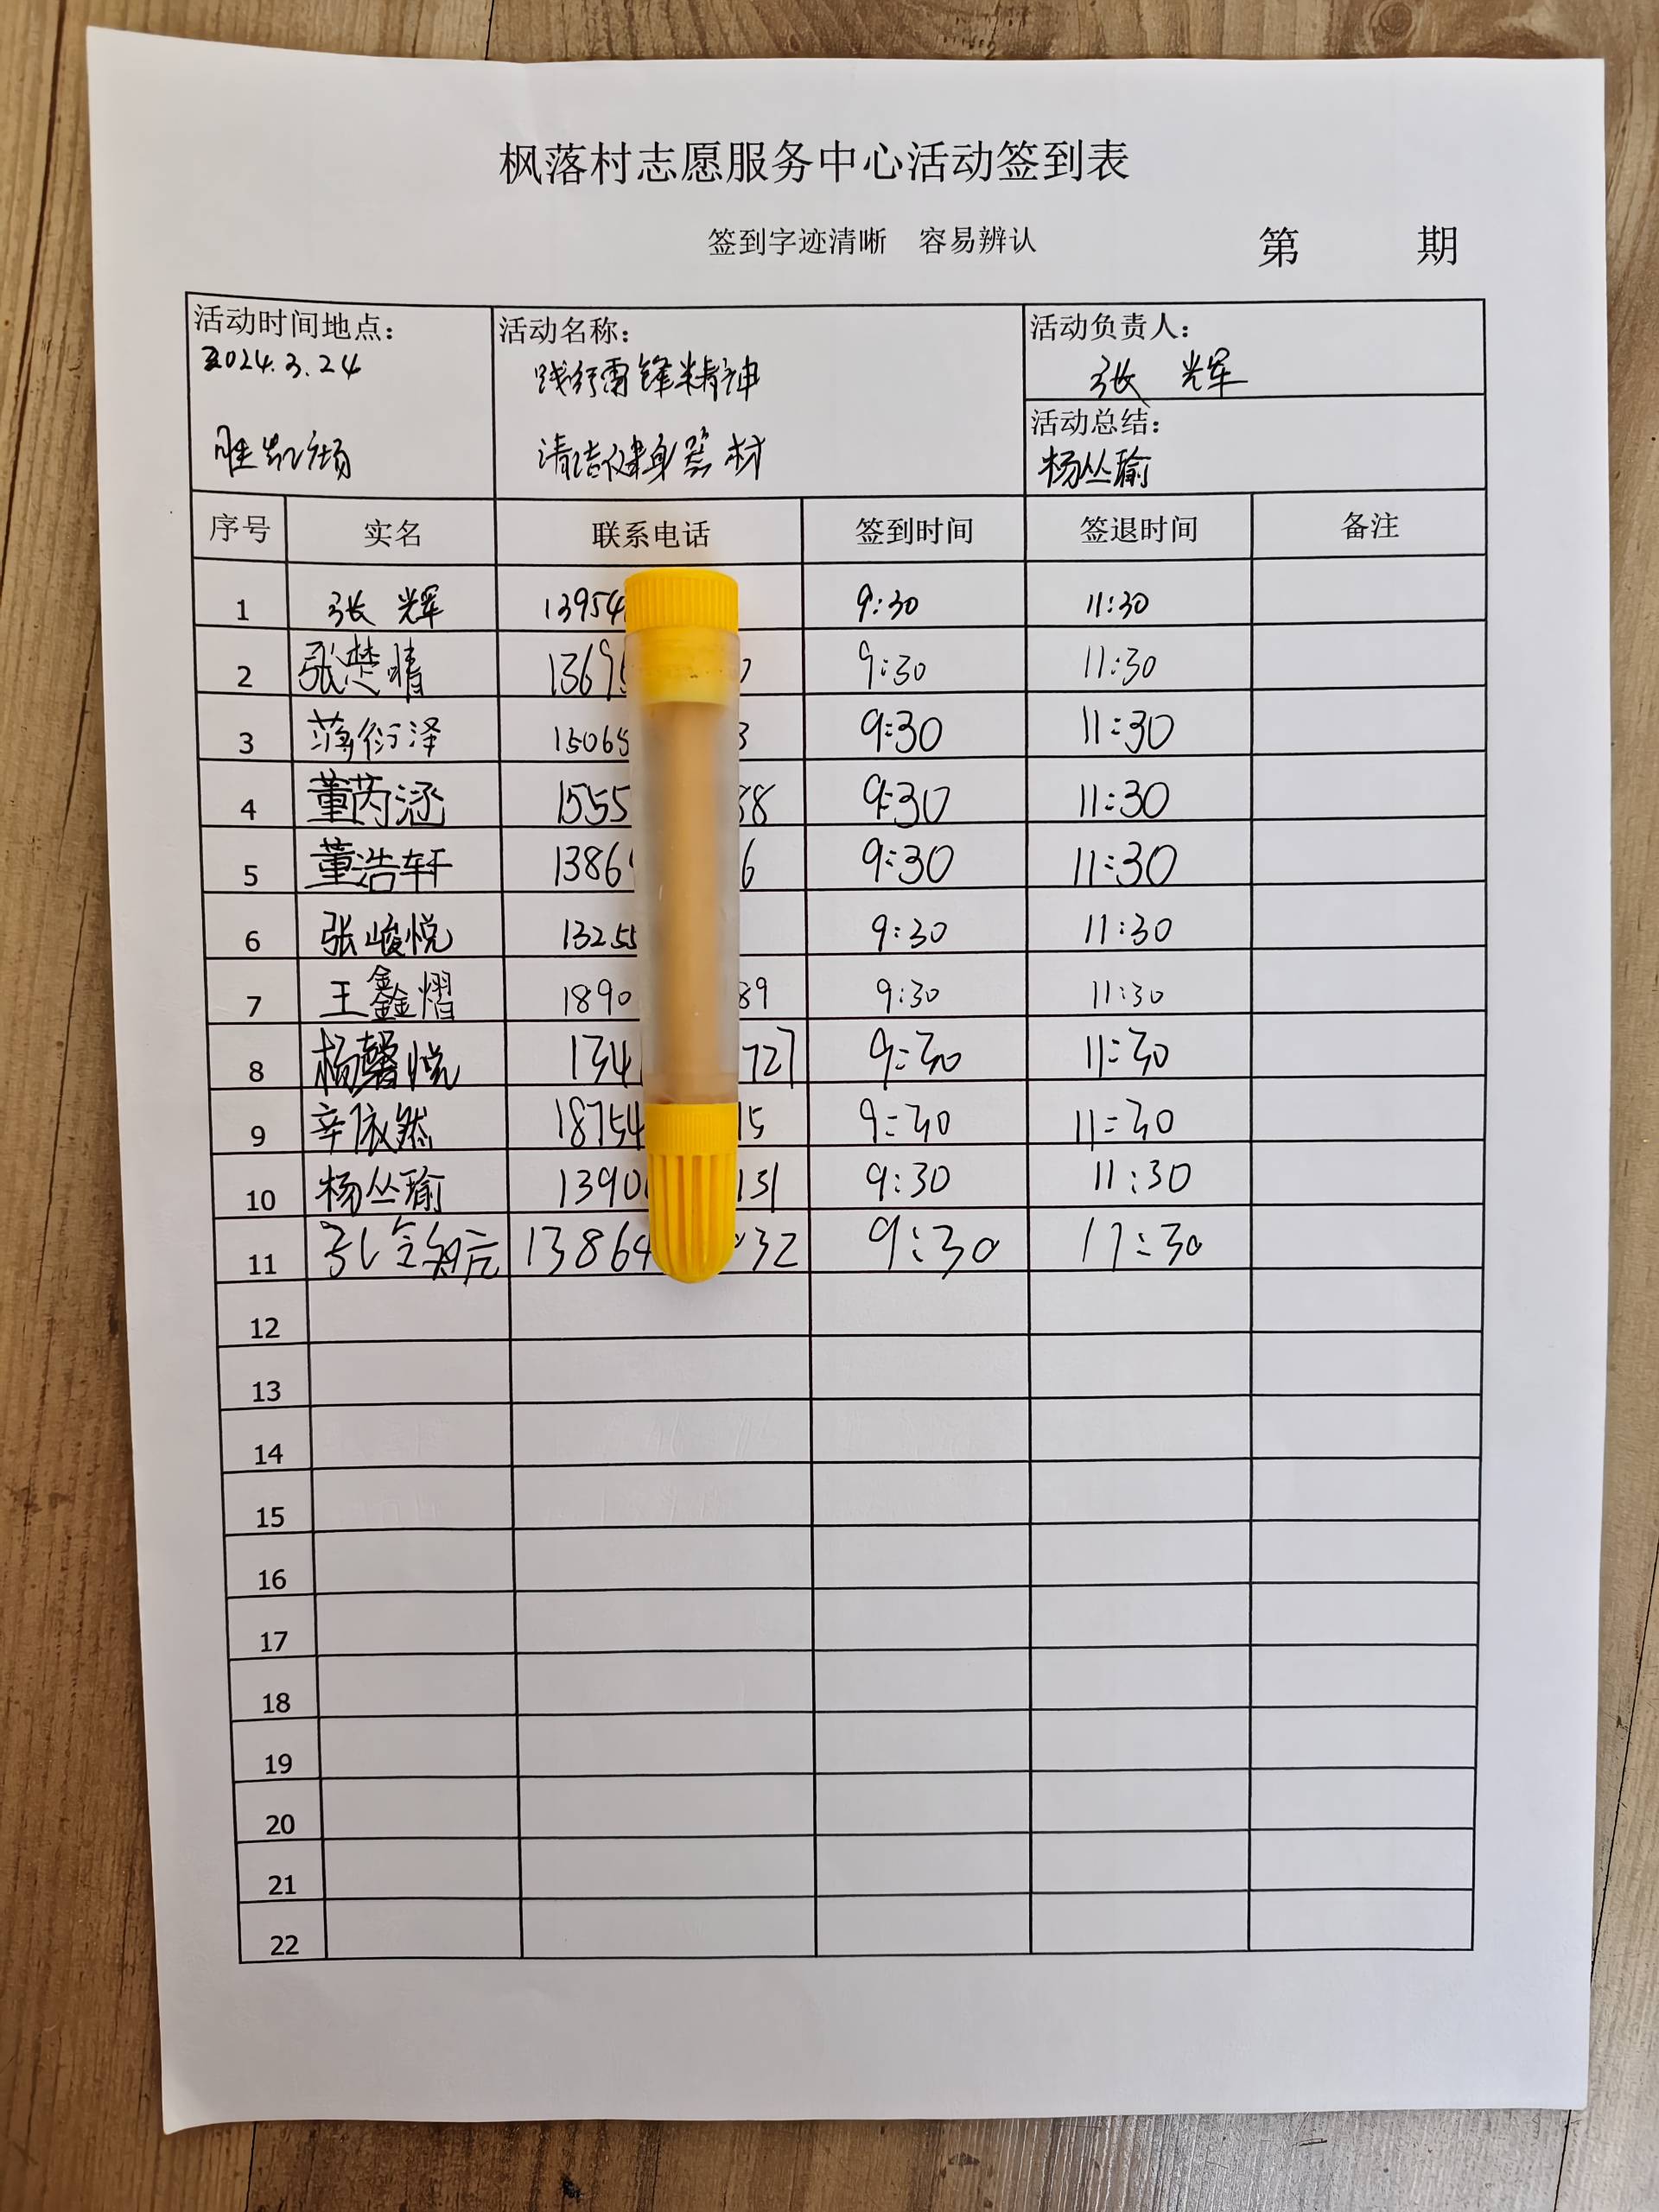 枫落村志愿服务中心活动签到表
签到字迹清晰 容易辨认 第 期
活动时间地点: 活动名称: 活动负责人:
2024.3.24 践行雷锋精神 张 辉
活动总结:
广场 清洁健身器材 杨丛瑜
序号 实名 联系电话 签到时间 签退时间 备注
1 张 辉 13954 9:30 11:30
2 张楚晴 1369 9:30 11:30
3 蒋衍泽 15065 3 9:30 11:30
4 董芮涵 1555 38 9:30 11:30
5 董浩轩 1386 6 9:30 11:30
6 张峻悦 13255 9:30 11:30
7 王鑫熠 1890 89 9:30 11:30
8 杨馨悦 134 727 9:30 11:30
9 辛依然 18754 15 9:30 11:30
10 杨丛瑜 1390 131 9:30 11:30
11 13864 32 9:30 11:30
12
13
14
15
16
17
18
19
20
21
22